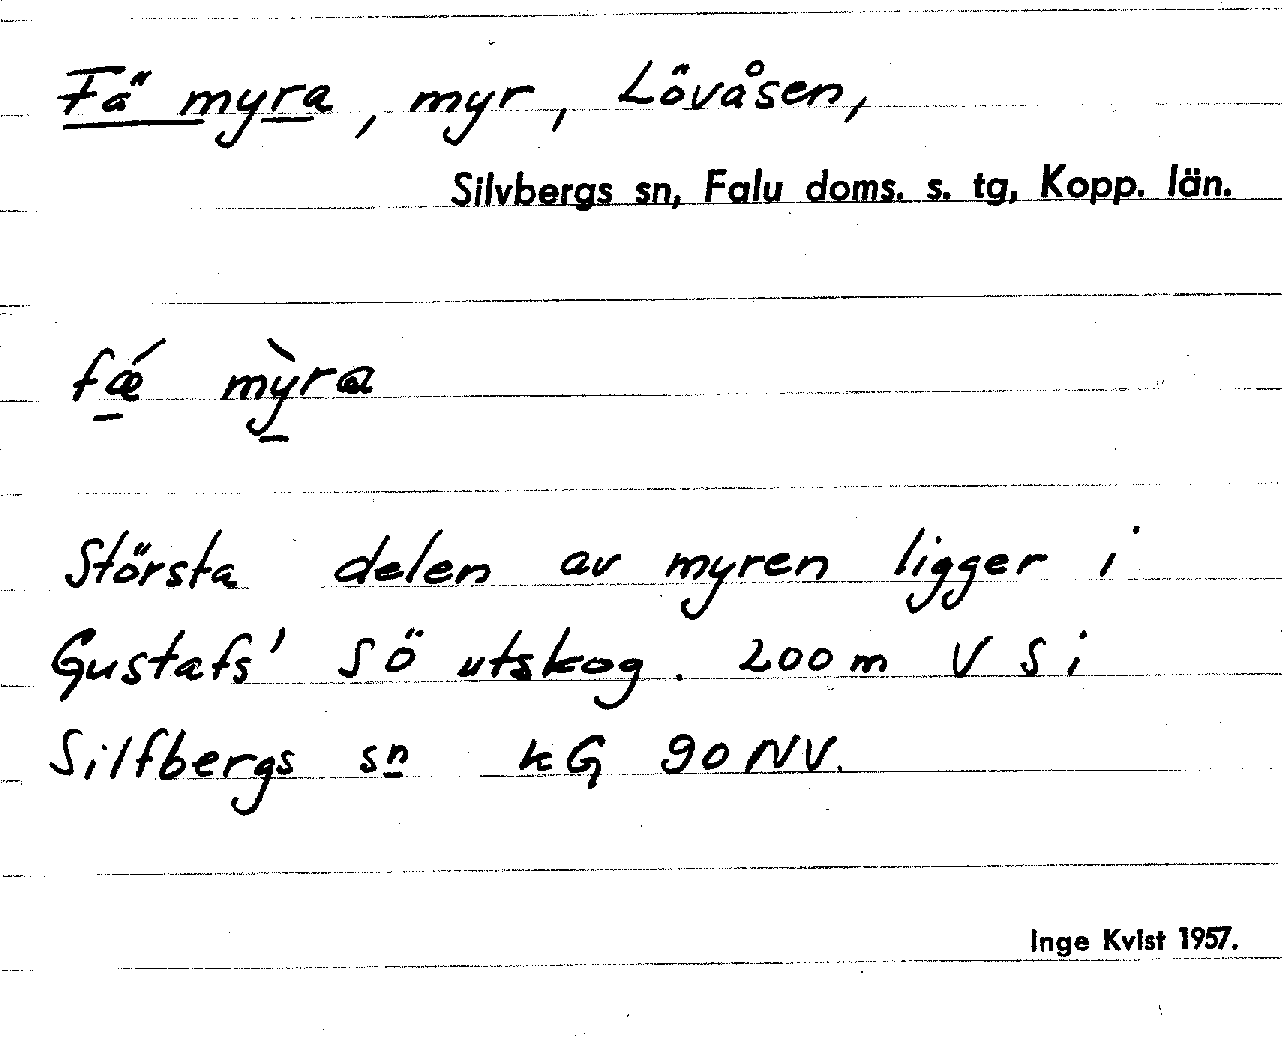 Fä myra, myr, Lövåsen,
Silvbergs sn, Falu doms. s. tg, Kopp. län.
fǽ mỳra
Största delen av myren ligger i
Gustafs' SÖ utskog. 200 m V S i
Silfbergs sn kG 90 NV.
Inge Kvist 1957.